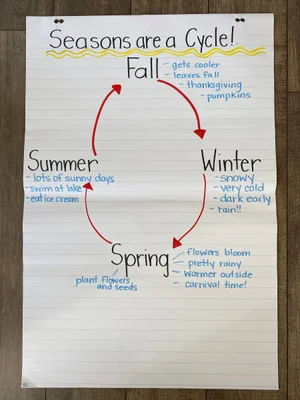 Seasons are a Cycle!
Fall
- gets cooler
- leaves fall
- thanksgiving
- pumpkins
Summer
- lots of sunny days
- swim at lake
- eat ice cream
Winter
- snowy
- very cold
- dark early
- rain!!
Spring
plant flowers
and seeds
flowers bloom
- pretty rainy
- warmer outside
- carnival time!